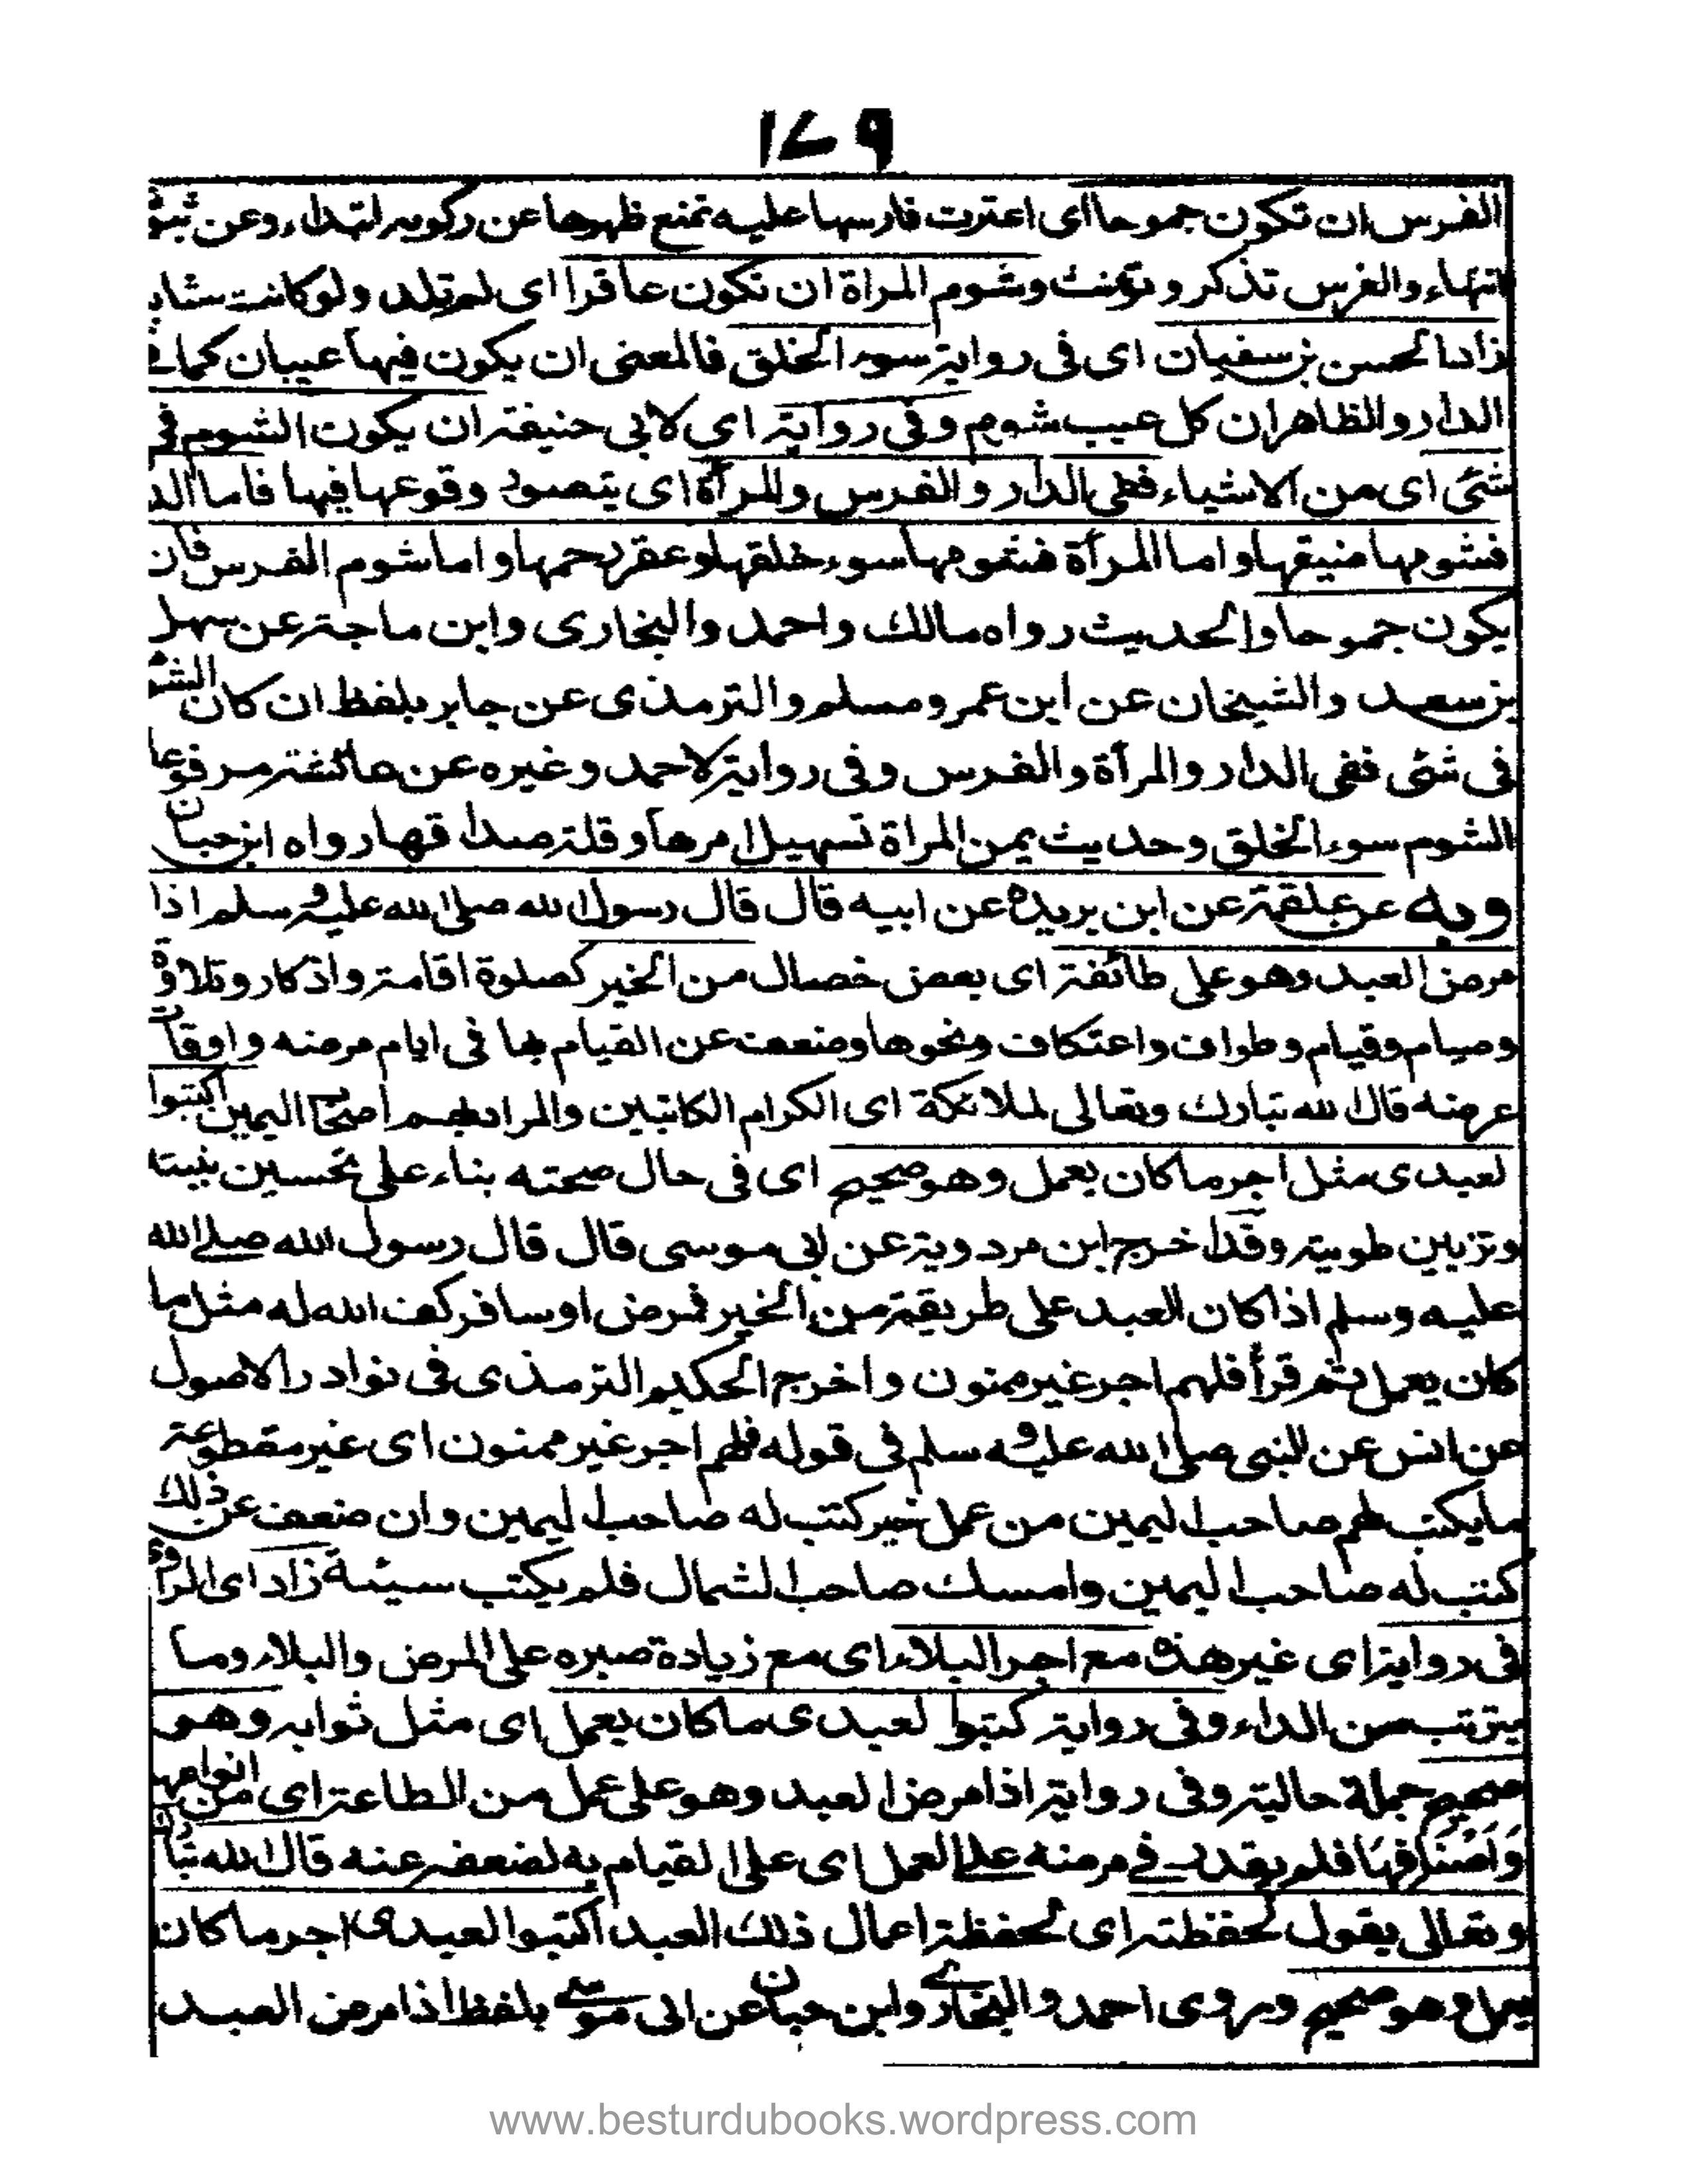 ۱۷۹
الفرس ان تكون جموحا اى اعترت فارسها عليه تمنع ظهرها عن ركوبه ابتداء وعن
انتهاء والفرس تذكر وتؤنث وشوم المراة ان تكون عاقرا اى لم تلد ولو كانت شابة
زاد الحسن بن سفيان اى فى رواية سوء الخلق فالمعنى ان يكون فيها عيبان كما فى
الدار والظاهر ان كل عيب شوم وفى رواية اى لابى حنيفة ان يكون الشوم فى
شئى اى من الاشياء ففى الدار والفرس والمرأة اى يتصور وقوعها فيها فاما الدار
فشومها ضيقها واما المرأة فشومها سوء خلقها وعقر رحمها واما شوم الفرس فان
يكون جموحا والحديث رواه مالك واحمد والبخارى وابن ماجة عن سهل
بن سعد والشيخان عن ابن عمر ومسلم والترمذى عن جابر بلفظ ان كان الشوم
فى شئى ففى الدار والمرأة والفرس وفى رواية لاحمد وغيره عن عائشة مرفوعا
الشوم سوء الخلق وحديث يمن المراة تسهيل امرها وقلة صداقها رواه ابن حبان
وبه عن علقمة عن ابن بريدة عن ابيه قال قال رسول الله صلى الله عليه وسلم اذا
مرض العبد وهو على طائفة اى بعض خصال من الخير كصلوة اقامة واذكار وتلاوة
وصيام وقيام وطواف واعتكاف ونحوها وضعف عن القيام بها فى ايام مرضه واوقات
عرضه قال الله تبارك وتعالى لملائكة اى الكرام الكاتبين والمراد بهم اصحاب اليمين اكتبوا
لعبدى مثل اجر ما كان يعمل وهو صحيح اى فى حال صحته بناء على تحسين نيته
وتزيين طويته وقد اخرج ابن مردوية عن ابى موسى قال قال رسول الله صلى الله
عليه وسلم اذا كان العبد على طريقة من الخير فمرض او سافر كتب الله له مثل ما
كان يعمل ثم قرأ فلهم اجر غير ممنون واخرج الحكيم الترمذى فى نوادر الاصول
عن انس عن النبى صلى الله عليه وسلم فى قوله فلهم اجر غير ممنون اى غير مقطوعة
ما يكتب لهم صاحب اليمين من عمل خير كتب له صاحب اليمين وان ضعف عن ذلك
كتب له صاحب اليمين وامسك صاحب الشمال فلم يكتب سيئة زاد اى الراوى
فى رواية اى غير هذه مع اجر البلاء اى مع زيادة صبره على المرض والبلاء وما
يترتب من الداء وفى رواية كتبوا لعبدى ما كان يعمل اى مثل ثوابه وهو
صحيح جملة حالية وفى رواية اذا مرض العبد وهو على عمل من الطاعة اى من انواعها
وَاَصْنَافِهَا فلم يقدر فى مرضه على العمل اى على القيام به لضعفه عنه قال الله تبارك
وتعالى يقول لحفظته اى لحفظة اعمال ذلك العبد اكتبوا لعبدى اجر ما كان
يعمل وهو صحيح وروى احمد والبخارى وابن حبان عن ابى موسى بلفظ اذا مرض العبد
www.besturdubooks.wordpress.com